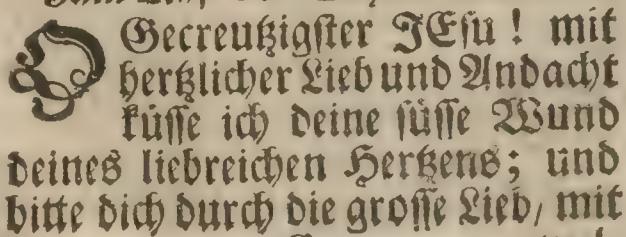 O Gecreutzigster JEsu! mit
hertzlicher Lieb und Andacht
küsse ich deine süsse Wund
deines liebreichen Hertzens; und
bitte dich durch die grosse Lieb/ mit